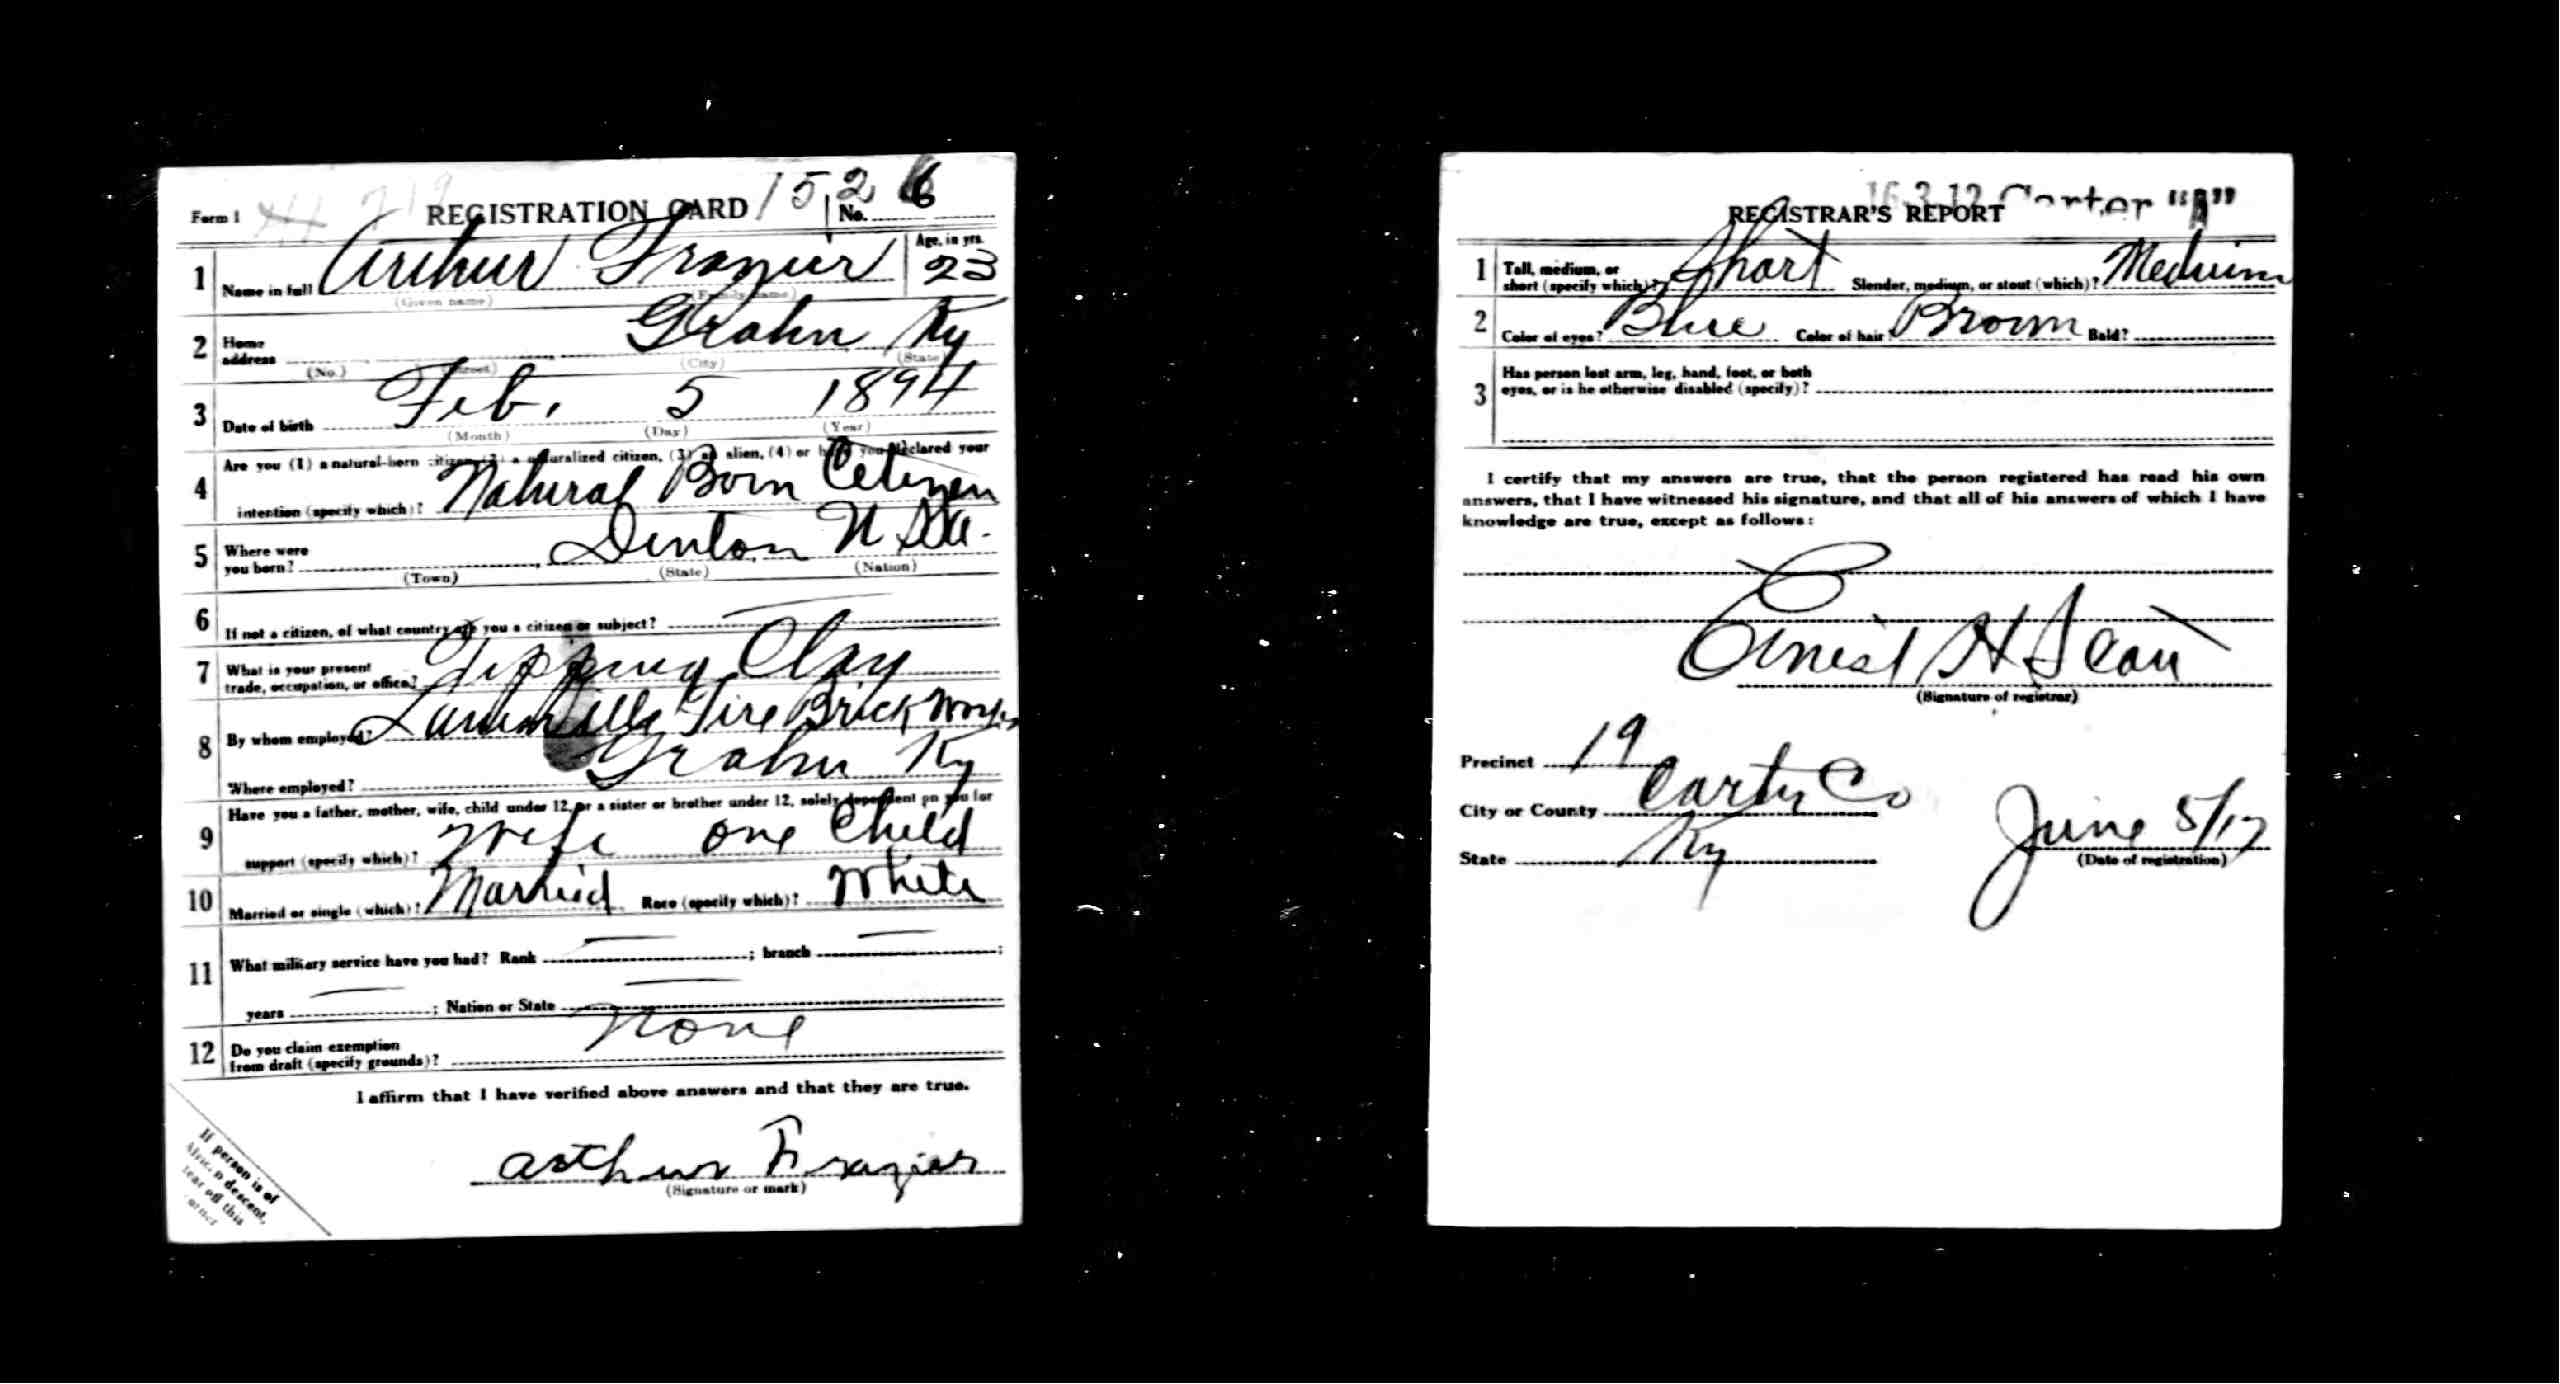 Form 1 REGISTRATION CARD 152 No. 6
1 Name in full Arthur Frazier Age, in yrs. 23
(Given name) (Family name)
2 Home address Grahn Ky
(No.) (Street) (City) (State)
3 Date of birth Feb. 5 1894
(Month) (Day) (Year)
4 Are you (1) a natural-born citizen, (2) a naturalized citizen, (3) an alien, (4) or have you declared your
intention (specify which)? Natural Born Citizen
5 Where were you born? Denton U.S.A.
(Town) (State) (Nation)
6 If not a citizen, of what country are you a citizen or subject?
7 What is your present trade, occupation, or office? Clay
8 By whom employed? Fire Brick Works
Where employed? Grahn Ky
9 Have you a father, mother, wife, child under 12, or a sister or brother under 12, solely dependent on you for
support (specify which)? Wife one Child
10 Married or single (which)? Married Race (specify which)? White
11 What military service have you had? Rank ; branch ;
years ; Nation or State
12 Do you claim exemption from draft (specify grounds)? None
I affirm that I have verified above answers and that they are true.
Arthur Frazier
(Signature or mark)
If person is of
African descent,
tear off this
corner
16-3-12 Carter "A"
REGISTRAR'S REPORT
1 Tall, medium, or short (specify which)? Short Slender, medium, or stout (which)? Medium
2 Color of eyes? Blue Color of hair? Brown Bald?
3 Has person lost arm, leg, hand, foot, or both
eyes, or is he otherwise disabled (specify)?
I certify that my answers are true, that the person registered has read his own
answers, that I have witnessed his signature, and that all of his answers of which I have
knowledge are true, except as follows:
Ernest H
(Signature of registrar)
Precinct 19
City or County Carter Co
State Ky June 5/17
(Date of registration)